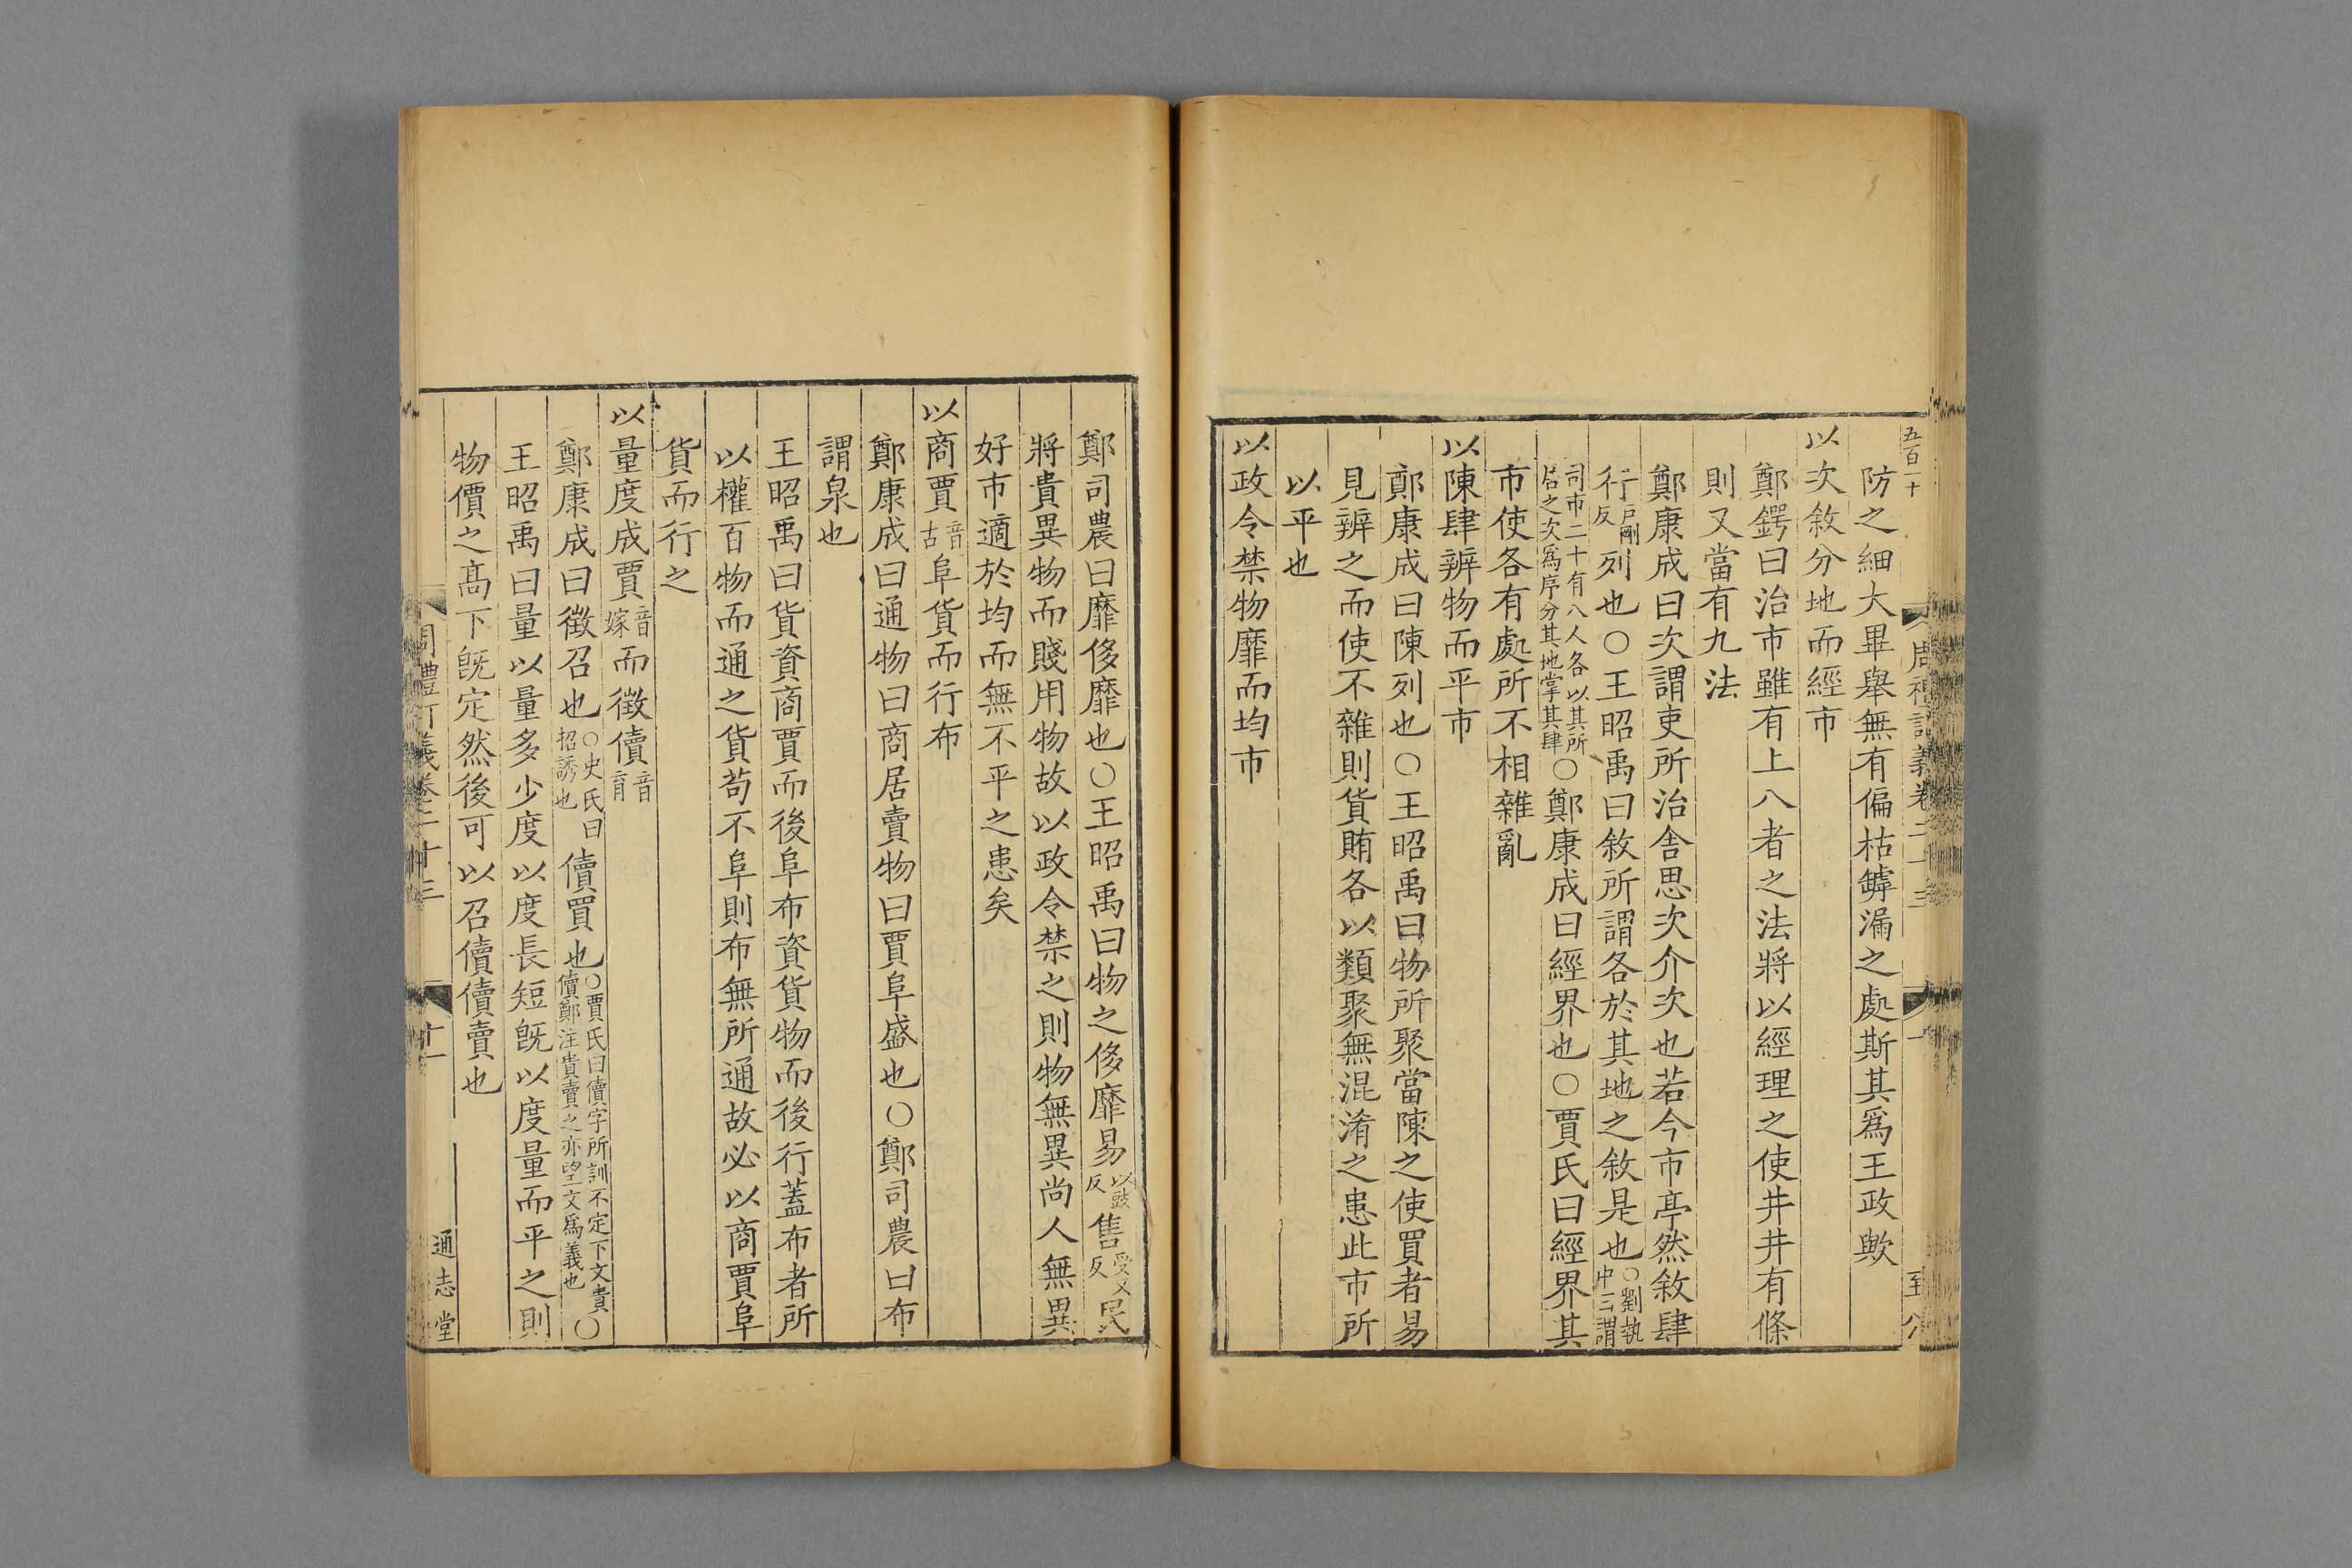 五百一十
周禮訂義卷二十三
防之細大畢舉無有偏枯罅漏之處斯其爲王政歟
以次敘分地而經市
鄭鍔曰治市雖有上八者之法將以經理之使井井有條
則又當有九法
鄭康成曰次謂吏所治舍思次介次也若今市亭然敘肆
行戶剛反列也○王昭禹曰敘所謂各於其地之敘是也○劉執中三謂
司市二十有八人各以其所居之次爲序分其地掌其肆○鄭康成曰經界也○賈氏曰經界其
市使各有處所不相雜亂
以陳肆辨物而平市
鄭康成曰陳列也○王昭禹曰物所聚當陳之使買者易
見辨之而使不雜則貨賄各以類聚無混淆之患此市所
以平也
以政令禁物靡而均市
鄭司農曰靡侈靡也○王昭禹曰物之侈靡易以豉反售受又反民
將貴異物而賤用物故以政令禁之則物無異尚人無異
好市適於均而無不平之患矣
以商賈音古阜貨而行布
鄭康成曰通物曰商居賣物曰賈阜盛也○鄭司農曰布
謂泉也
王昭禹曰貨資商賈而後阜布資貨物而後行蓋布者所
以權百物而通之貨苟不阜則布無所通故必以商賈阜
貨而行之
以量度成賈音嫁而徵儥音育
鄭康成曰徵召也○史氏曰招誘也儥買也○賈氏曰儥字所訓不定下文貴儥鄭注貴賣之亦望文爲義也○
王昭禹曰量以量多少度以度長短旣以度量而平之則
物價之高下旣定然後可以召儥儥賣也
周禮訂義卷二十三
十一
通志堂